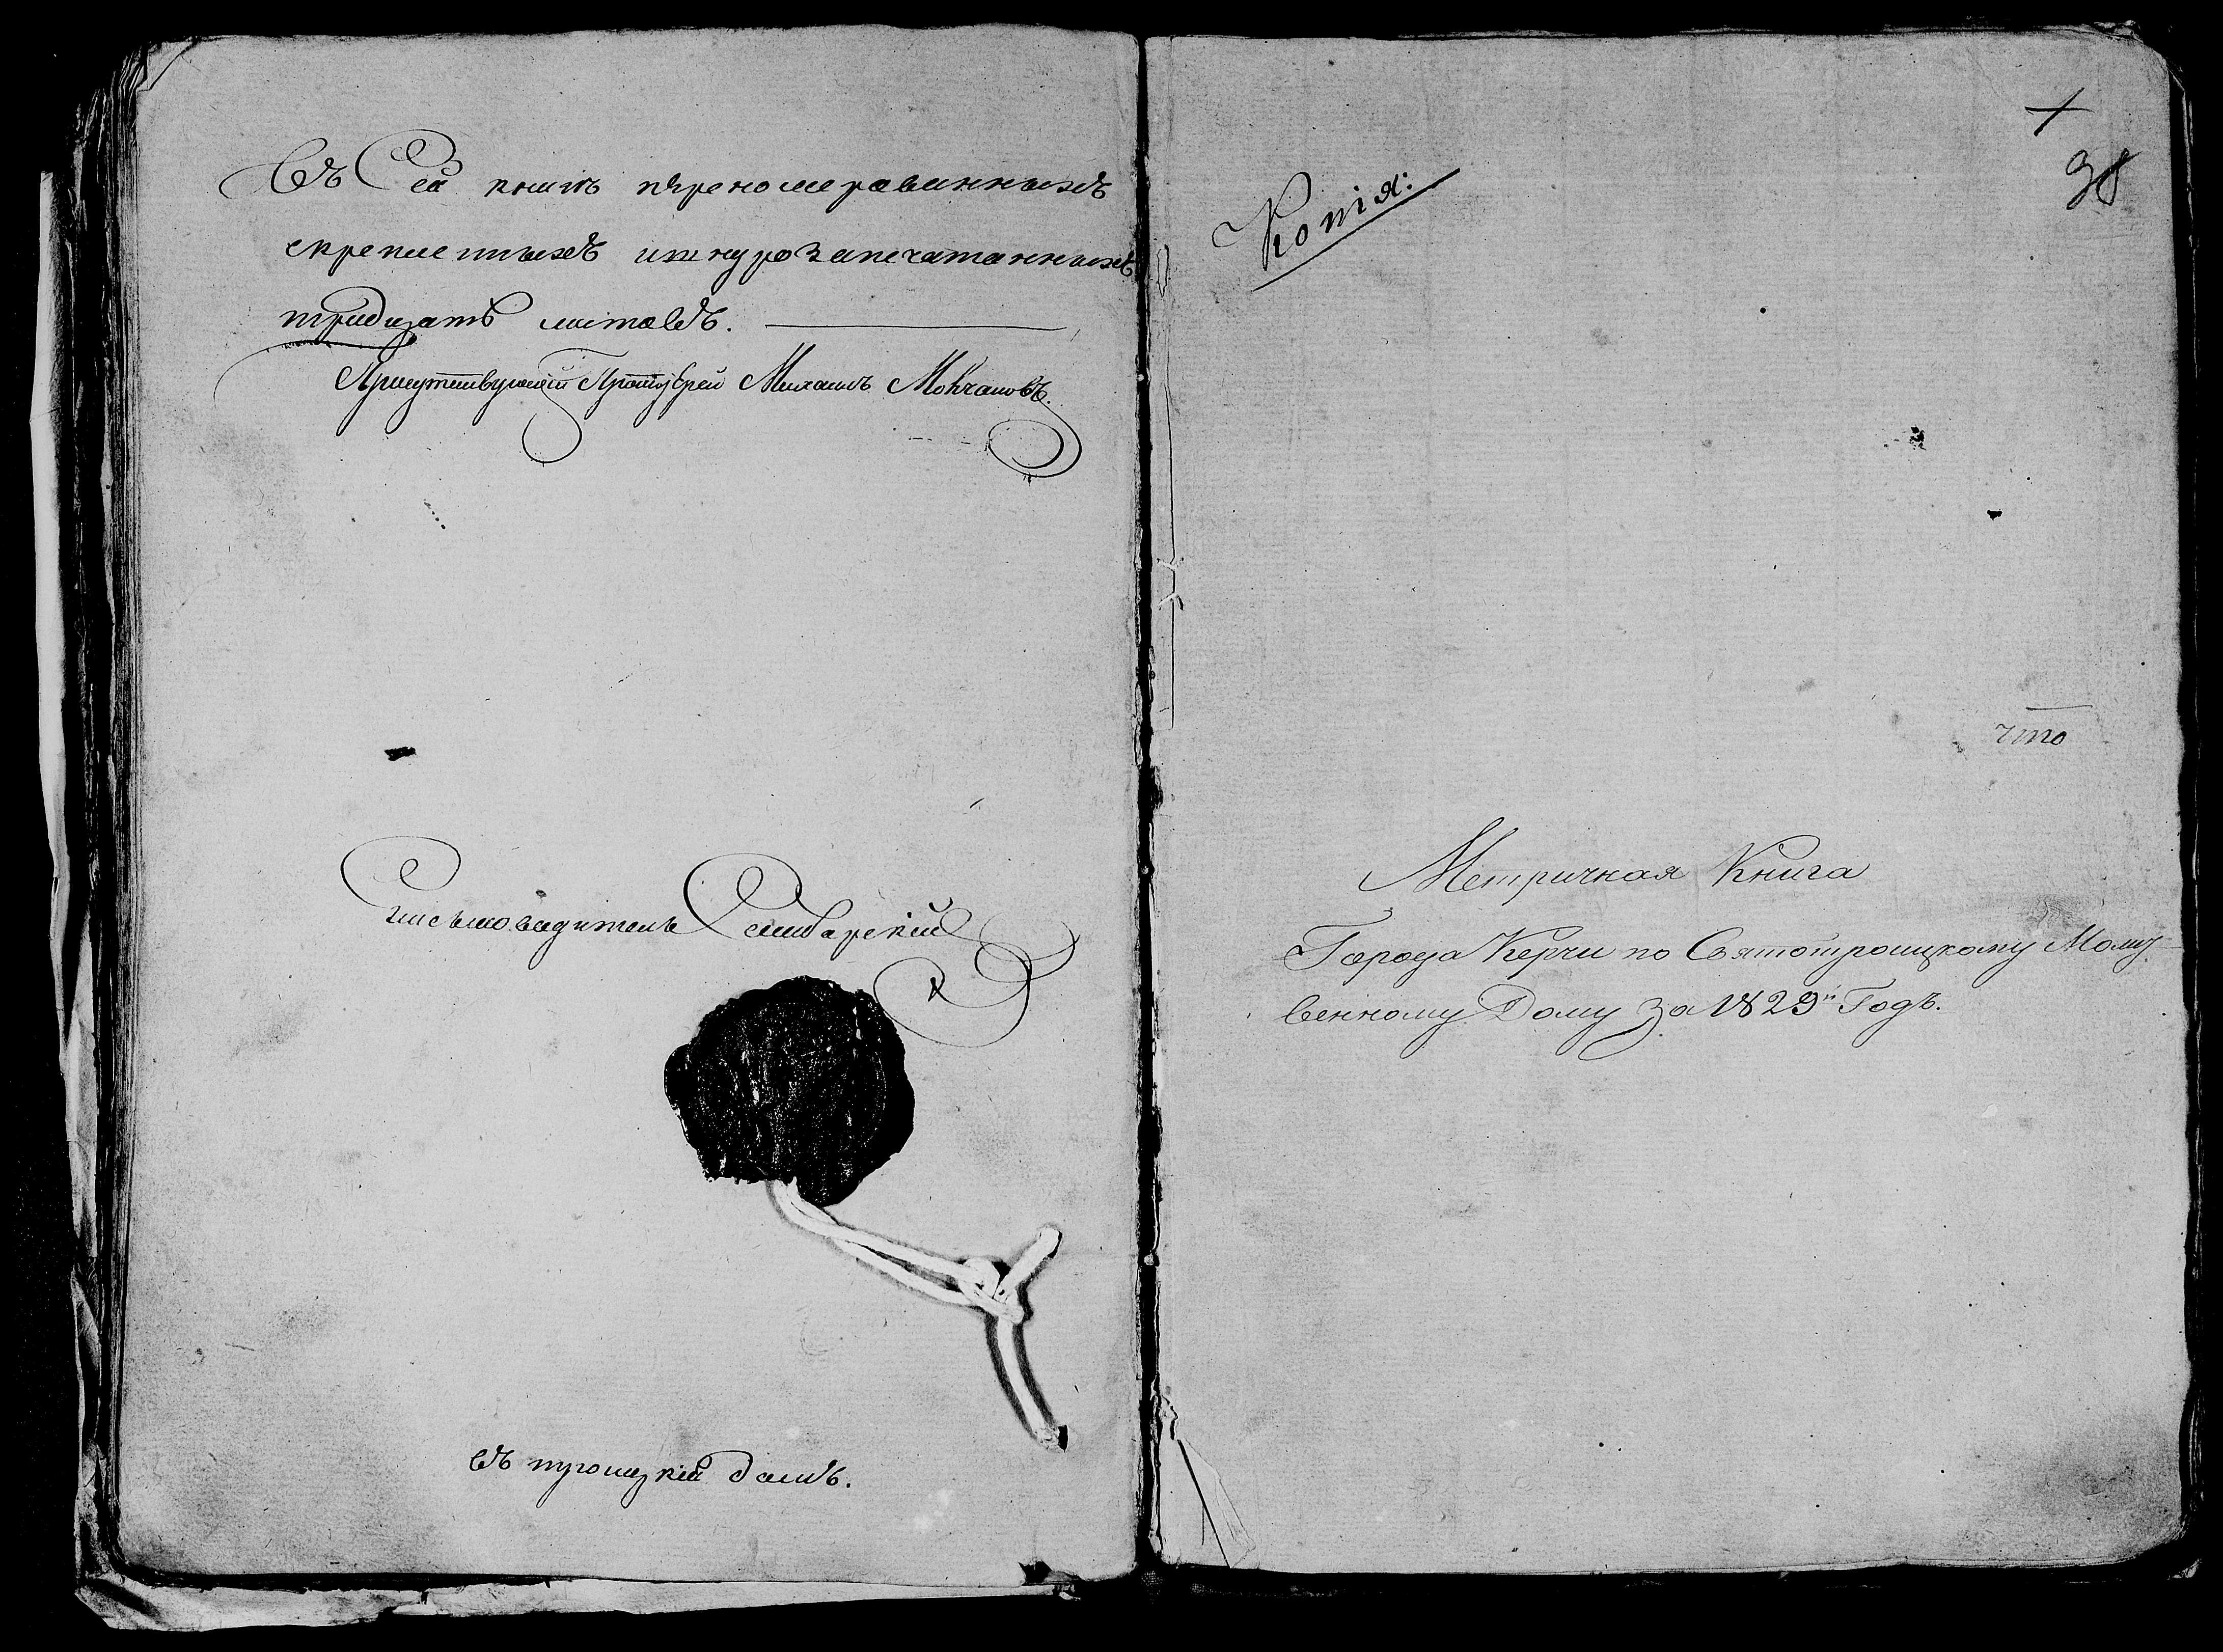 Въ Сей книгѣ перенумерованныхъ
скрепленыхъ и шнурозапечатанныхъ
тридцать листовъ.
Присутствующій Протоіерей Михаилъ Мончановъ.
Письмоводитель
въ троицкій домъ.
Копія:
38
что
Метричная Книга
Города Керчи по Святотроицкому Молит
венному Дому За 1829й Годъ.